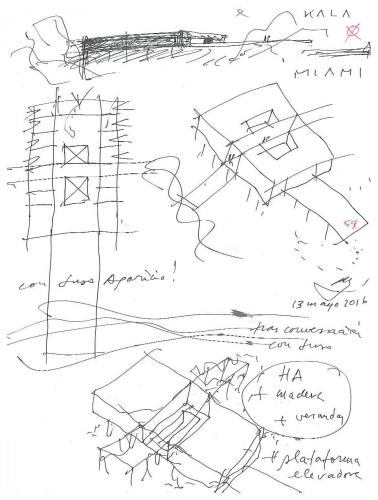 KALA
MIAMI
con Aparicio!
13 mayo 2016
tras conversación
con
HA
+ madera
+ veranda
+ plataforma
elevadora